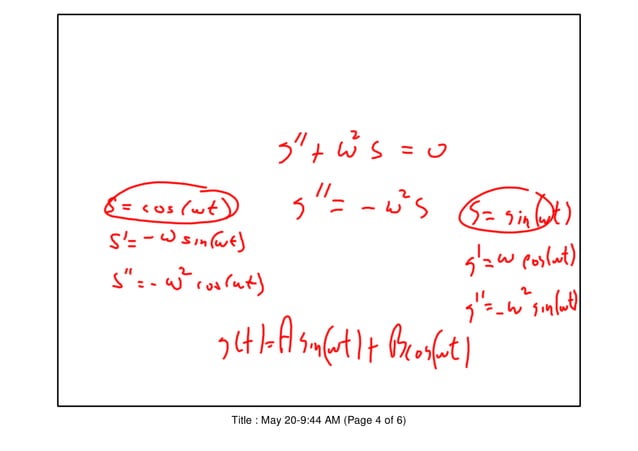 s'' + ω² s = 0
s'' = - ω² s
s = cos(ωt)
s' = - ω sin(ωt)
s'' = - ω² cos(ωt)
s = sin(ωt)
s' = ω cos(ωt)
s'' = - ω² sin(ωt)
s(t) = A sin(ωt) + B cos(ωt)
Title : May 20-9:44 AM (Page 4 of 6)